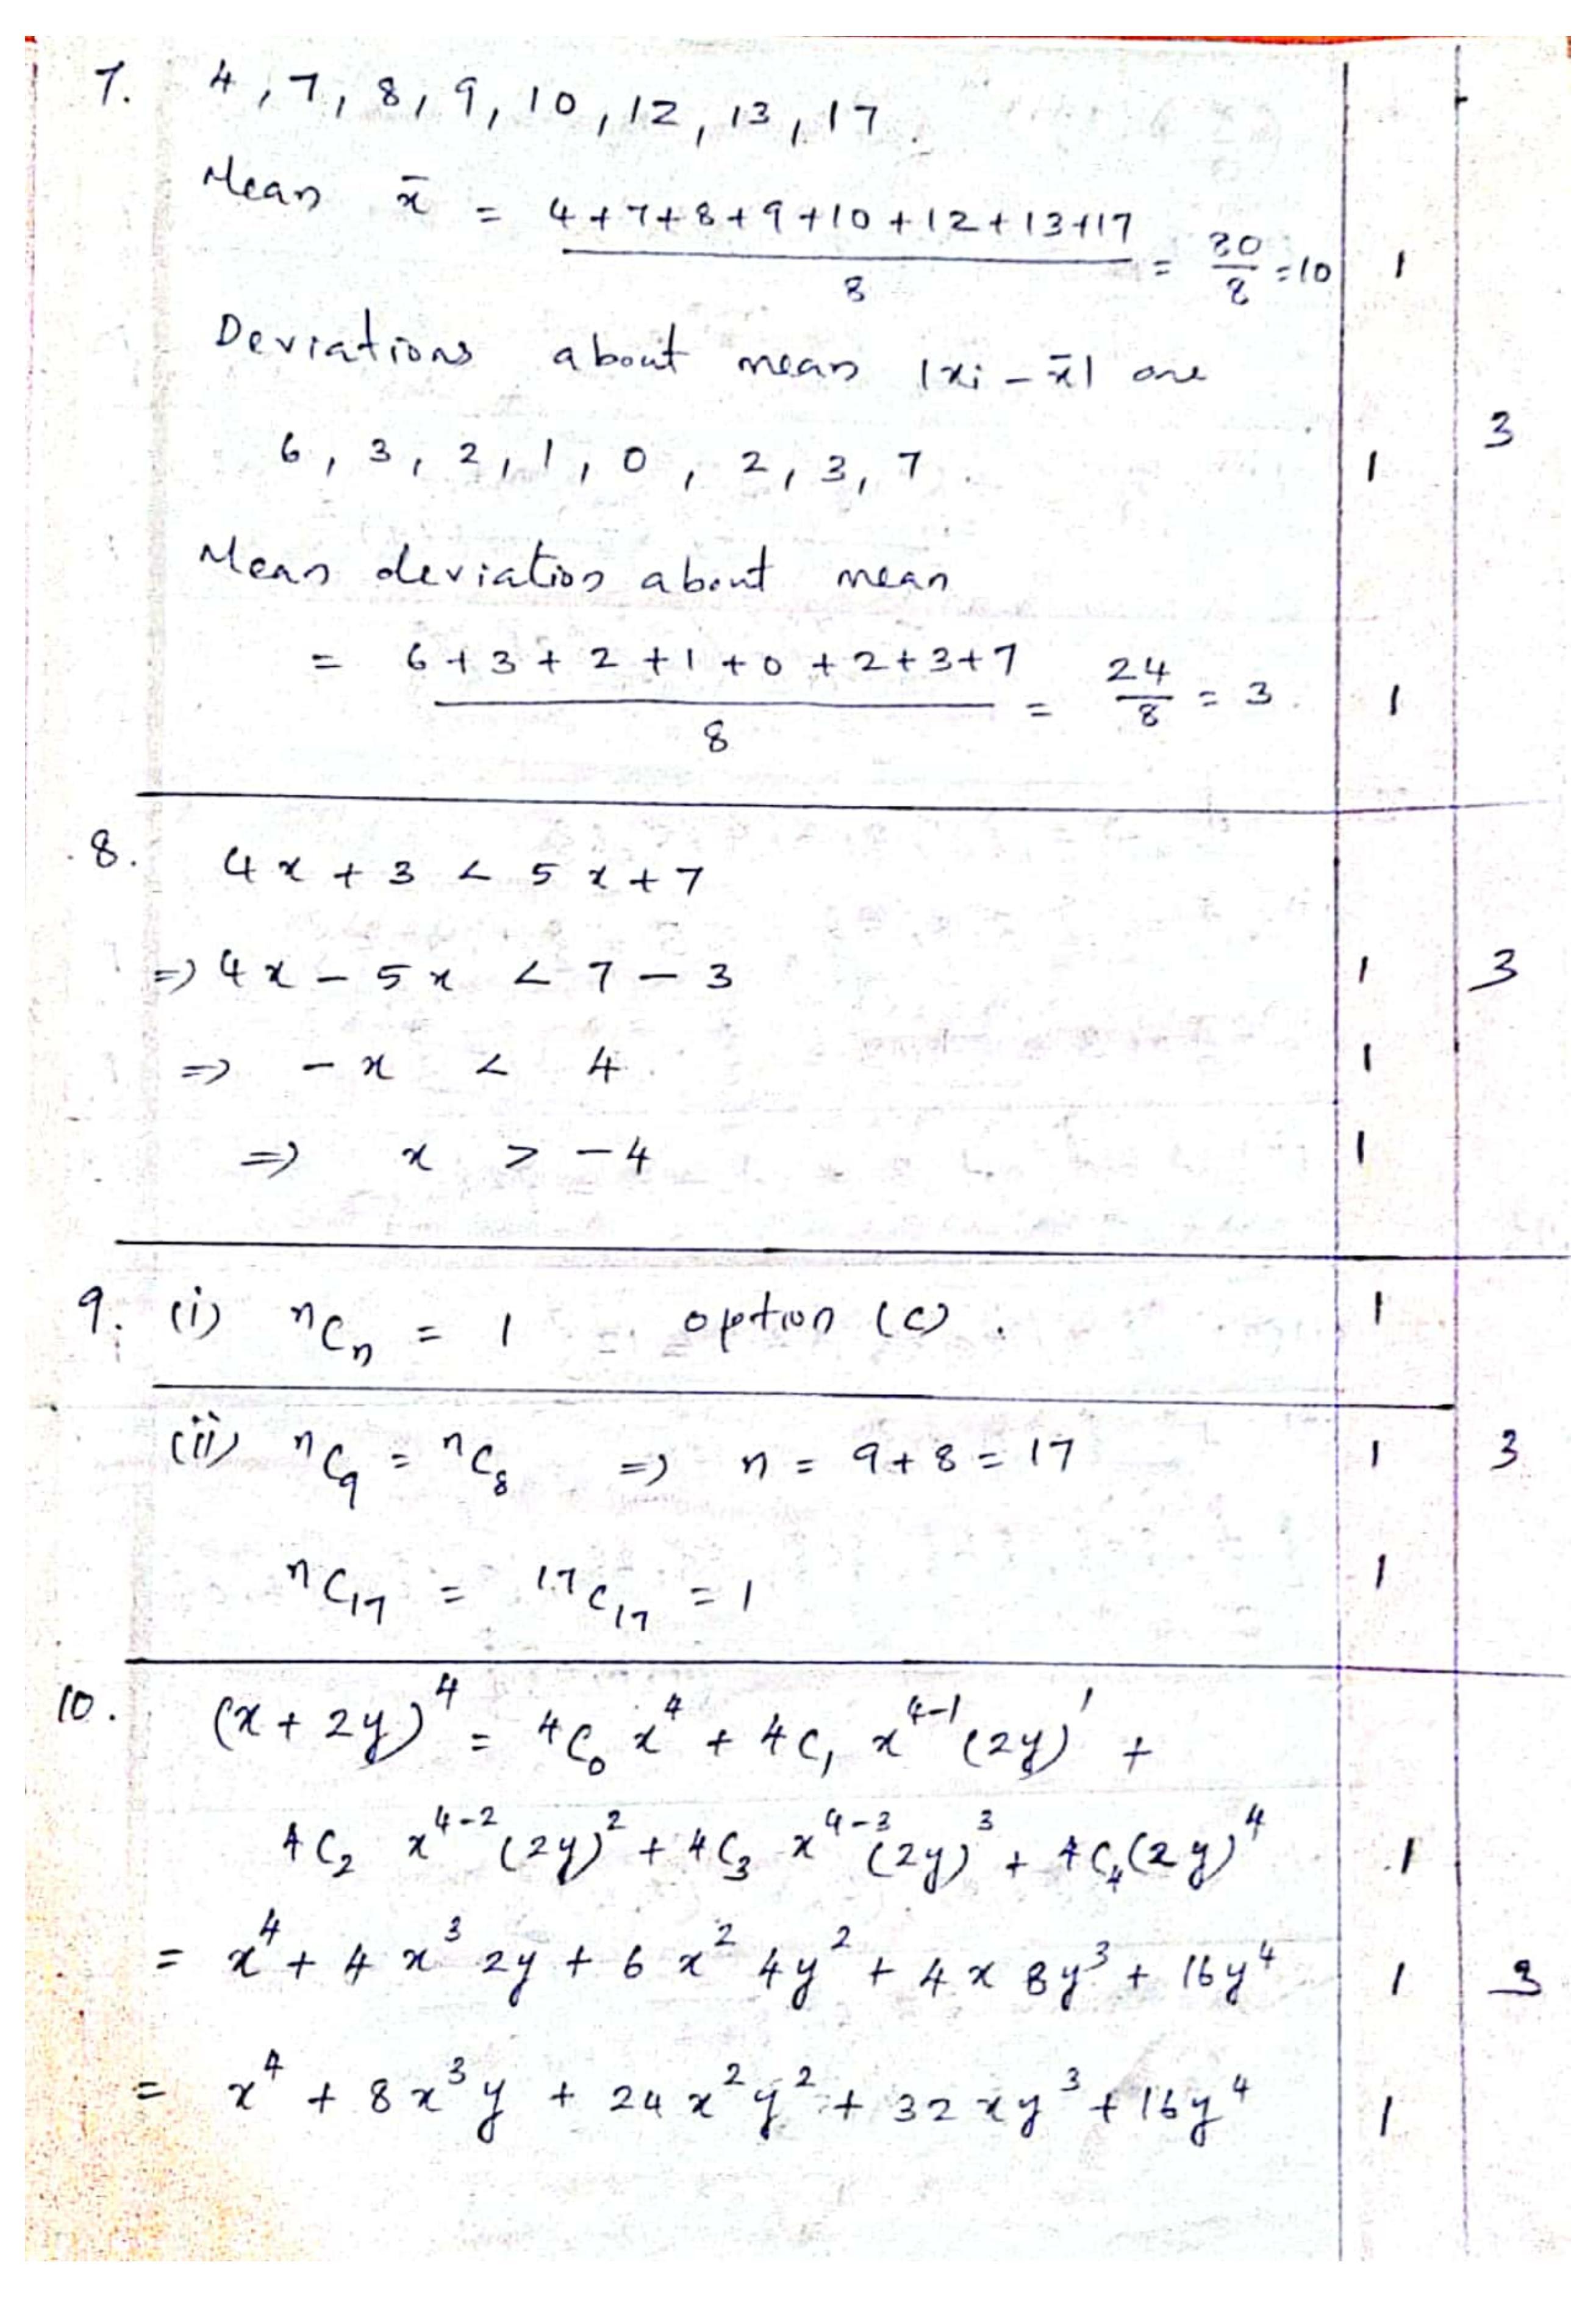 7. 4, 7, 8, 9, 10, 12, 13, 17.
Mean x̄ = (4+7+8+9+10+12+13+17)/8 = 80/8 = 10 1
Deviations about mean |xi − x̄| are
3
6, 3, 2, 1, 0, 2, 3, 7. 1
Mean deviation about mean
= (6+3+2+1+0+2+3+7)/8 = 24/8 = 3. 1
8. 4x + 3 < 5x + 7
⇒ 4x − 5x < 7 − 3 1 3
⇒ − x < 4. 1
⇒ x > −4 1
9. (i) ⁿCₙ = 1 option (c). 1
(ii) ⁿC₉ = ⁿC₈ ⇒ n = 9+8 = 17 1 3
ⁿC₁₇ = ¹⁷C₁₇ = 1 1
10. (x + 2y)⁴ = 4C₀ x⁴ + 4C₁ x⁴⁻¹ (2y)¹ +
4C₂ x⁴⁻² (2y)² + 4C₃ x⁴⁻³ (2y)³ + 4C₄ (2y)⁴ 1
= x⁴ + 4 x³ 2y + 6 x² 4y² + 4 x 8y³ + 16y⁴ 1 3
= x⁴ + 8x³y + 24 x²y² + 32 xy³ + 16y⁴ 1